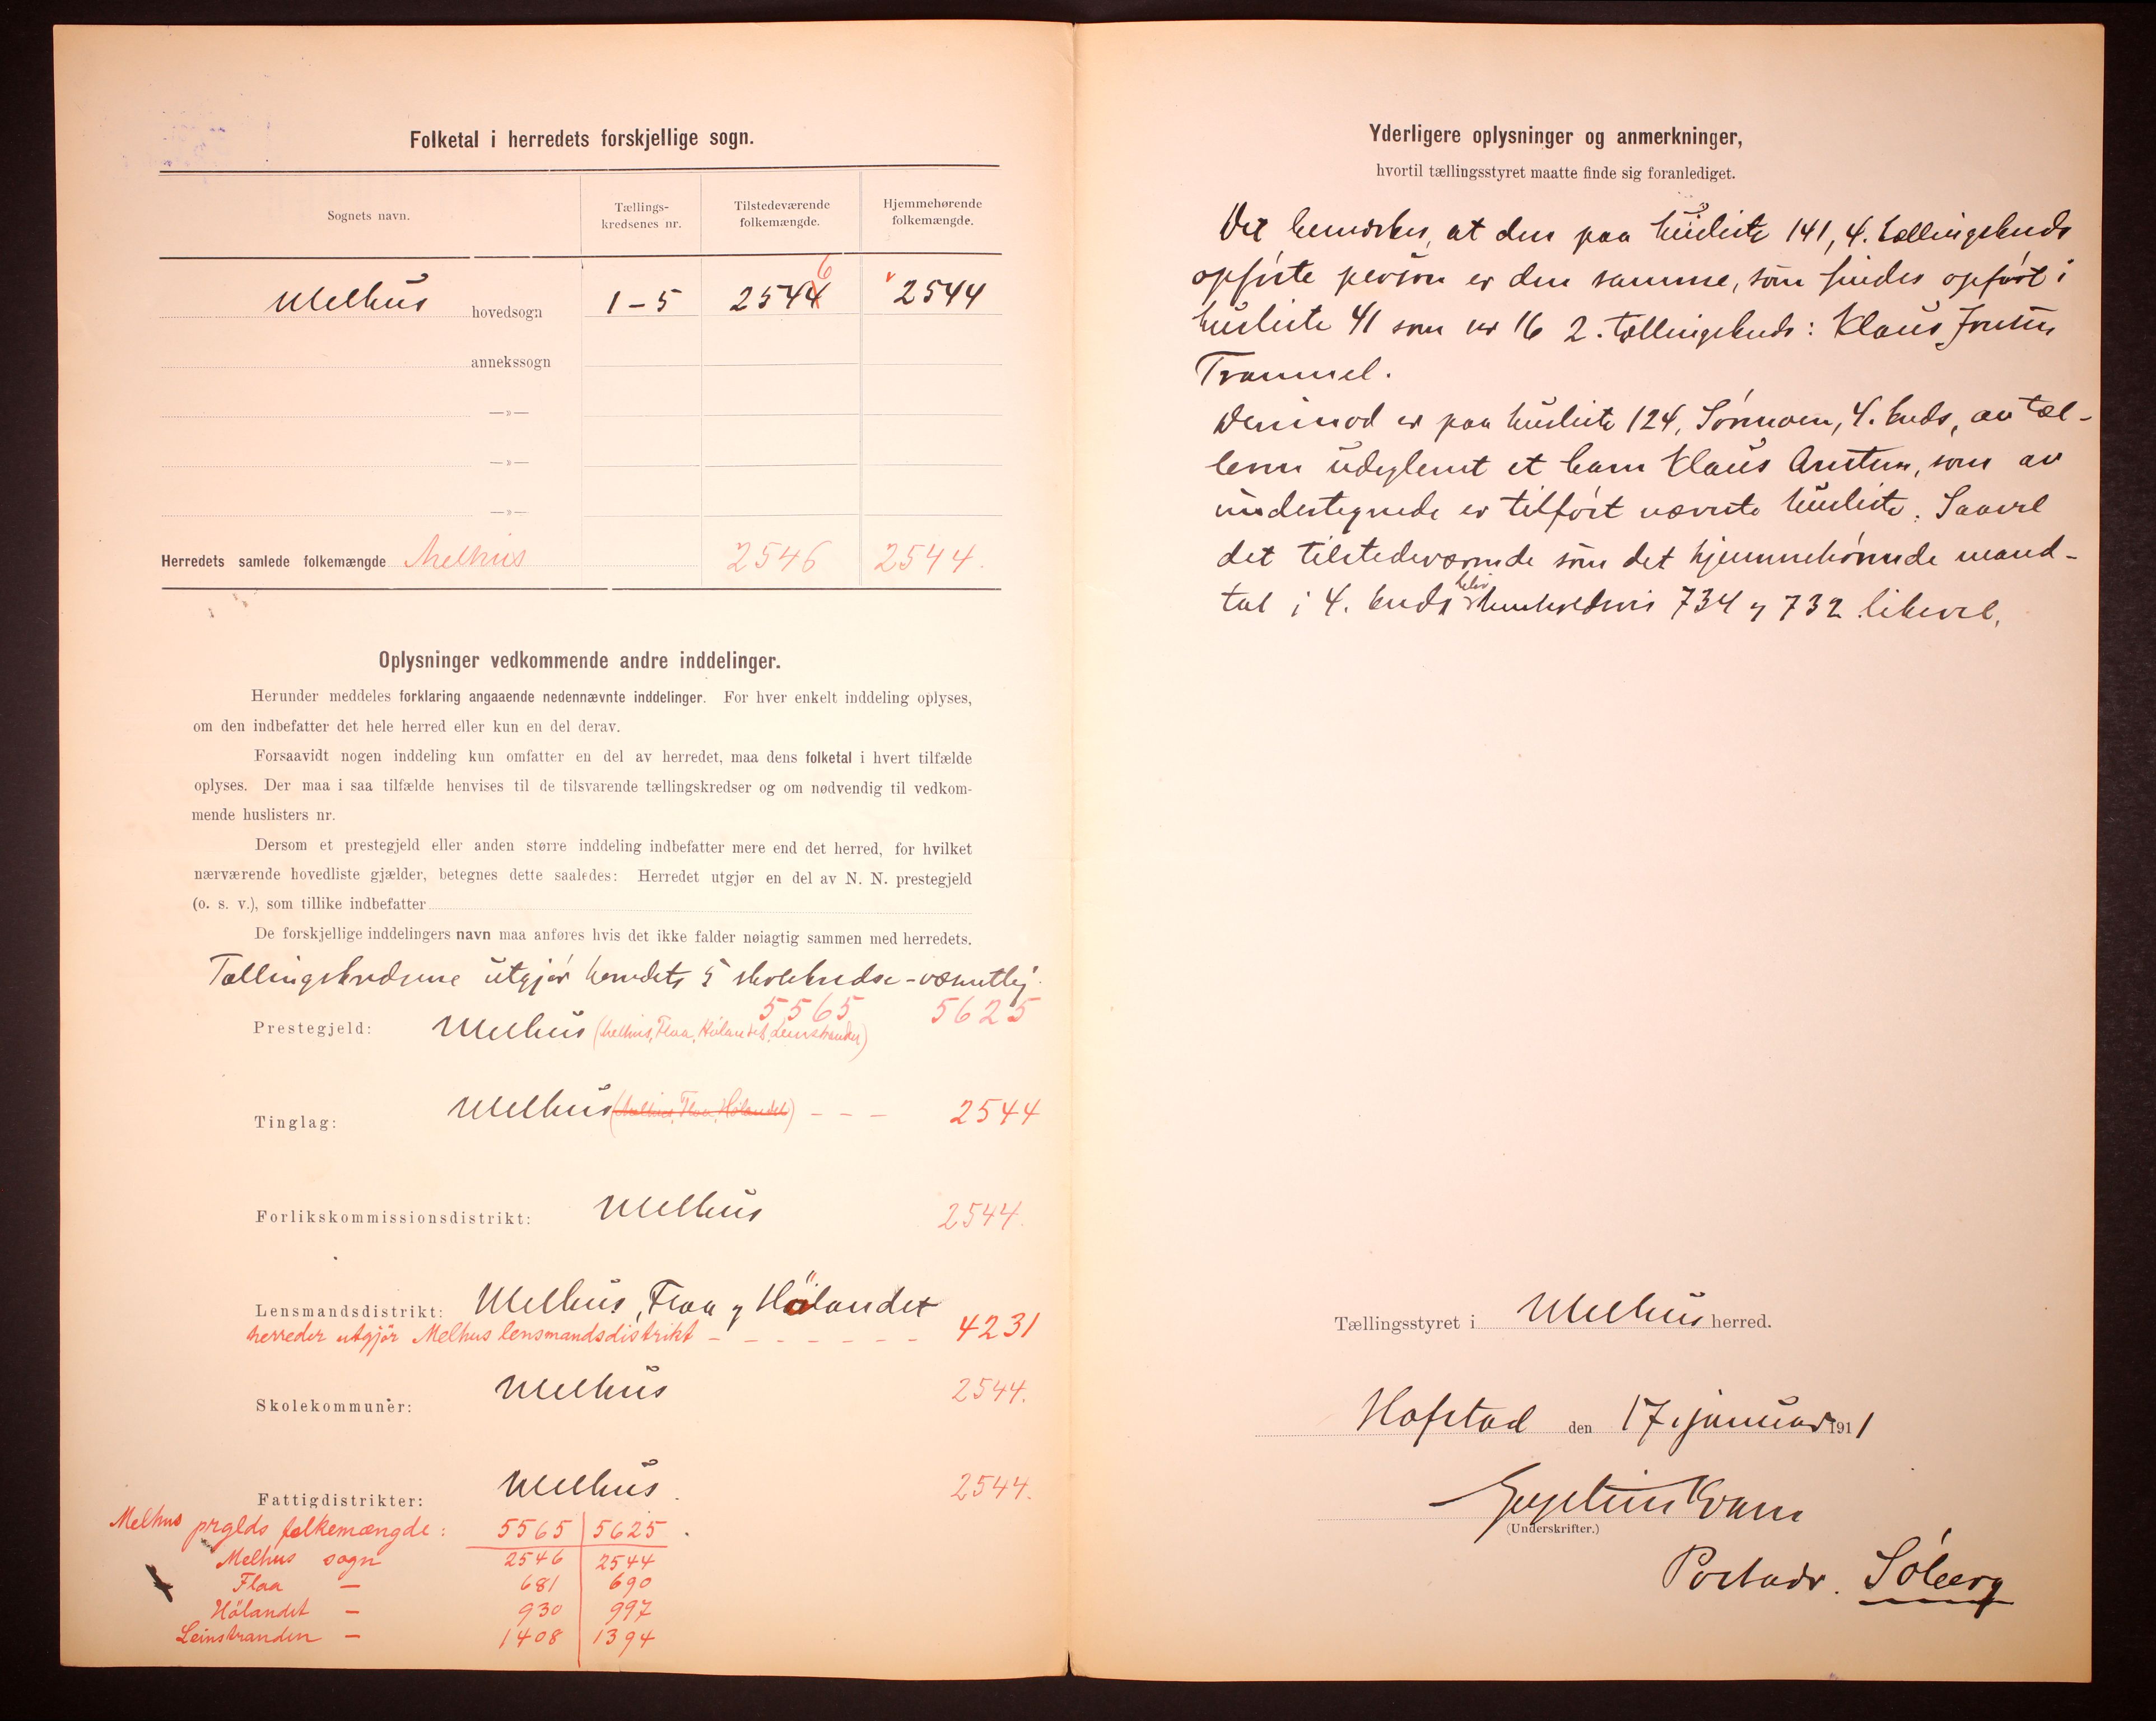 Folketal i herredets forskjellige sogn.
Sognets navn.
Tællings-
kredsenes nr.
Tilstedeværende
folkemængde.
Hjemmehørende
folkemængde.
Melhus hovedsogn 1-5 2544 6 2544
annekssogn
—»—
—»—
—»—
Herredets samlede folkemængde Melhus 2546 2544.
Oplysninger vedkommende andre inddelinger.
Herunder meddeles forklaring angaaende nedennævnte inddelinger. For hver enkelt inddeling oplyses,
om den indbefatter det hele herred eller kun en del derav.
Forsaavidt nogen inddeling kun omfatter en del av herredet, maa dens folketal i hvert tilfælde
oplyses. Der maa i saa tilfælde henvises til de tilsvarende tællingskredser og om nødvendig til vedkom-
mende huslisters nr.
Dersom et prestegjeld eller anden større inddeling indbefatter mere end det herred, for hvilket
nærværende hovedliste gjælder, betegnes dette saaledes: Herredet utgjør en del av N. N. prestegjeld
(o. s. v.), som tillike indbefatter
De forskjellige inddelingers navn maa anføres hvis det ikke falder nøiagtig sammen med herredets.
Tællingskredsene utgjør herredets 5 skolekredse - væsentlig.
5565 5625
Prestegjeld: Melhus (Melhus, Flaa, Hölandet, Leinstranden)
Tinglag: Melhus (Melhus, Flaa, Hölandet) - - - 2544
Forlikskommissionsdistrikt: Melhus 2544.
Lensmandsdistrikt: Melhus, Flaa og Hölandet
herreder utgjör Melhus lensmandsdistrikt - - - - - - - 4231
Skolekommuner: Melhus 2544.
Fattigdistrikter: Melhus. 2544.
Melhus prglds folkemængde: 5565 5625.
Melhus sogn 2546 2544
Flaa — 681 690
Hölandet — 930 997
Leinstranden — 1408 1394
Yderligere oplysninger og anmerkninger,
hvortil tællingsstyret maatte finde sig foranlediget.
Det bemerkes, at den paa husliste 141, 4. tællingskreds
opførte person er den samme, som findes opført i
husliste 41 som nr 16 2. tællingskreds: Klaus
Trammel.
Derimod er paa husliste 124, Sørmoen, 4. kreds, av tæl-
leren udeglemt et barn Klaus, som av
undertegnede er tilført nævnte husliste. Saavel
det tilstedeværende som det hjemmehørende mand-
tal i 4. kreds blir henholdsvis 734 og 732 likevel.
Tællingsstyret i Melhus herred.
Hofstad den 17. januar 1911
Kvam
(Underskrifter.)
Postadr. Söberg